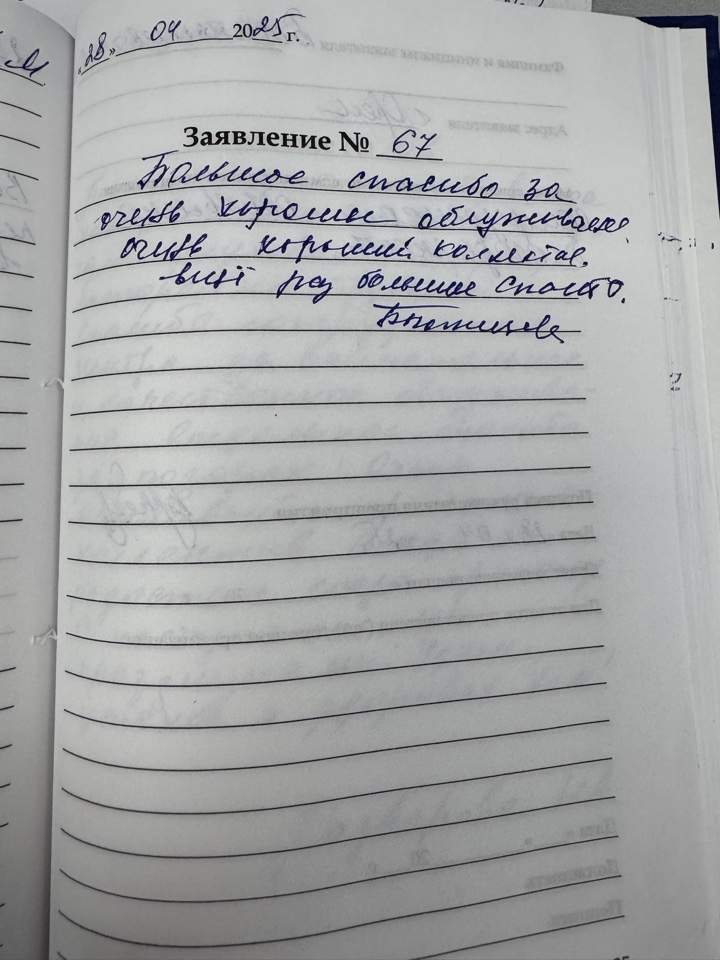 «28» 04 2025 г.
Заявление № 67
Большое спасибо за
очень хорошии облуживаем
очень хороший коллектив.
ещё раз большое спасибо.